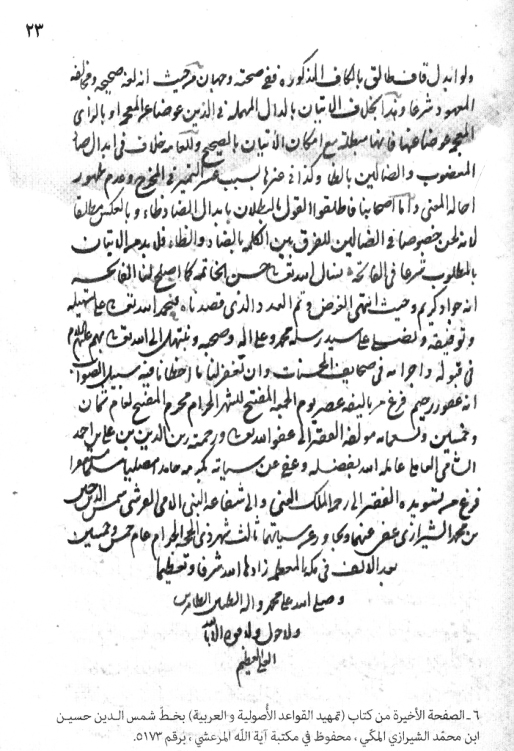 ٢٣
ولو ابدل قاف طالق بالكاف المذكورة ففي صحته وجهان من حيث انه لغة صحيحة ومخالفة
المعهود شرعا وهذا بخلاف الاتيان بالدال المهملة في الذين عوضا عن المعجمة او بالزاي
المعجمة عوضا عنها فانها مبطلة مع امكان الاتيان بالصحيح وللعامة خلاف في ابدال ضاد
المغضوب والضالين بالظاء وكذا في غيرها بسبب عسر التميز في المخرج وعدم ظهور
احالة المعنى واما اصحابنا فاطلقوا القول بالبطلان بابدال الضاد ظاء وبالعكس مطلقا
لانه لحن خصوصا في الضالين للفرق بين الكلمة بالضاد والظاء فلم يصدر الاتيان
بالمطلوب شرعا في الفاتحة نسال الله تعالى حسن الخاتمة كما اصلح لنا الفاتحة
انه جواد كريم وحيث انتهى الغرض وتم العدد الذي قصدناه فنحمد الله تعالى على تسهيله
وتوفيقه ونصلي على سيد رسله محمد وعلى اله وصحبه ونبتهل الى الله تعالى بهم عليهم السلام
في قبوله واجرائه في صحايف الحسنات وان تغفر لنا ما اخطانا فيه سبيل الصواب
انه غفور رحيم فرغ من تاليفه عصر يوم الجمعة المفتتح للشهر الحرام محرم المفتتح لعام ثمان
وخمسين وتسعمائة مولفه الفقير الى عفو الله تعالى ورحمته زين الدين بن علي بن احمد
الشامي العاملي عامله الله بفضله وعفى عن سيئاته بكرمه حامدا مصليا مسلما
فرغ من تسويده الفقير الى رحمة الملك الغني والى شفاعة النبي الامي القرشي شمس الدين حسين
بن محمد الشيرازي عفى عنهما وتجاوز عن سيئاتهما ثالث شهر ذي الحجة الحرام عام خمس وخمسين
بعد الالف في مكة المعظمة زادها الله شرفا وتعظيما
وصلى الله على محمد واله الطيبين الطاهرين
ولا حول ولا قوة الا بالله
العلي العظيم
٦ ـ الصفحة الأخيرة من كتاب (تمهيد القواعد الأصولية و العربية) بخطّ شمس الدين حسين
ابن محمّد الشيرازي المكّي ، محفوظ في مكتبة آية الله المرعشي ، برقم ٥١٧٣.